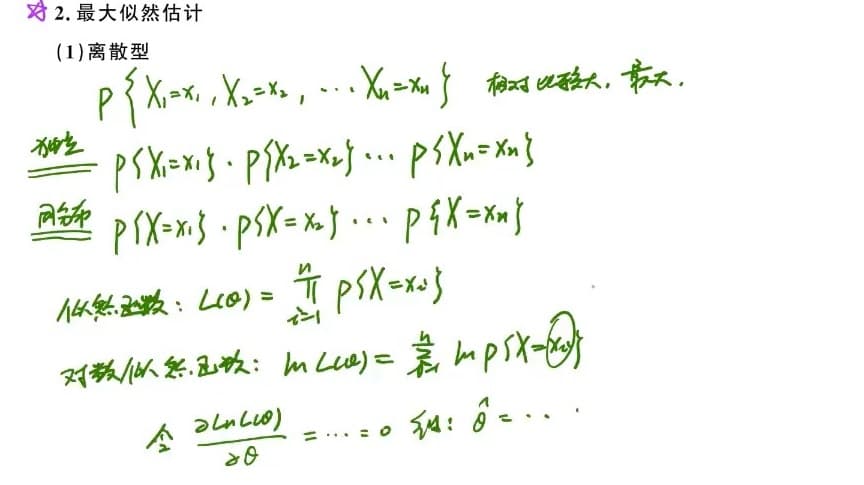 2. 最大似然估计
(1)离散型
P{X₁=x₁, X₂=x₂, ... Xₙ=xₙ} 相对比较大,最大.
独立 P{X₁=x₁}·P{X₂=x₂}...P{Xₙ=xₙ}
同分布 P{X=x₁}·P{X=x₂}...P{X=xₙ}
似然函数: L(θ) = ∏ᵢ₌₁ⁿ P{X=xᵢ}
对数似然函数: ln L(θ) = ∑ᵢ₌₁ⁿ ln P{X=xᵢ}
令 ∂ln L(θ)/∂θ = ... = 0 : θ̂ = ...